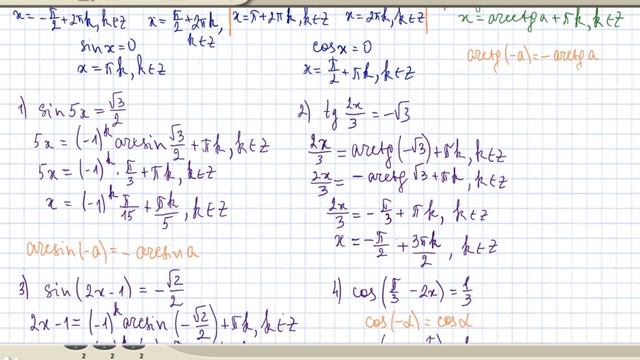 x = -π/2 + 2πk, k∈Z
x = π/2 + 2πk, k∈Z
x = π + 2πk, k∈Z
x = 2πk, k∈Z
x = arctg a + πk, k∈Z
sin x = 0
x = πk, k∈Z
cos x = 0
x = π/2 + πk, k∈Z
arctg(-a) = -arctg a
1) sin 5x = √3/2
5x = (-1)^k arcsin √3/2 + πk, k∈Z
5x = (-1)^k · π/3 + πk, k∈Z
x = (-1)^k π/15 + πk/5, k∈Z
arcsin(-a) = - arcsin a
2) tg 2x/3 = -√3
2x/3 = arctg(-√3) + πk, k∈Z
2x/3 = - arctg √3 + πk, k∈Z
2x/3 = -π/3 + πk, k∈Z
x = -π/2 + 3πk/2, k∈Z
3) sin(2x-1) = -√2/2
2x-1 = (-1)^k arcsin(-√2/2) + πk, k∈Z
4) cos(π/3 - 2x) = 1/3
cos(-α) = cos α
2 2 2